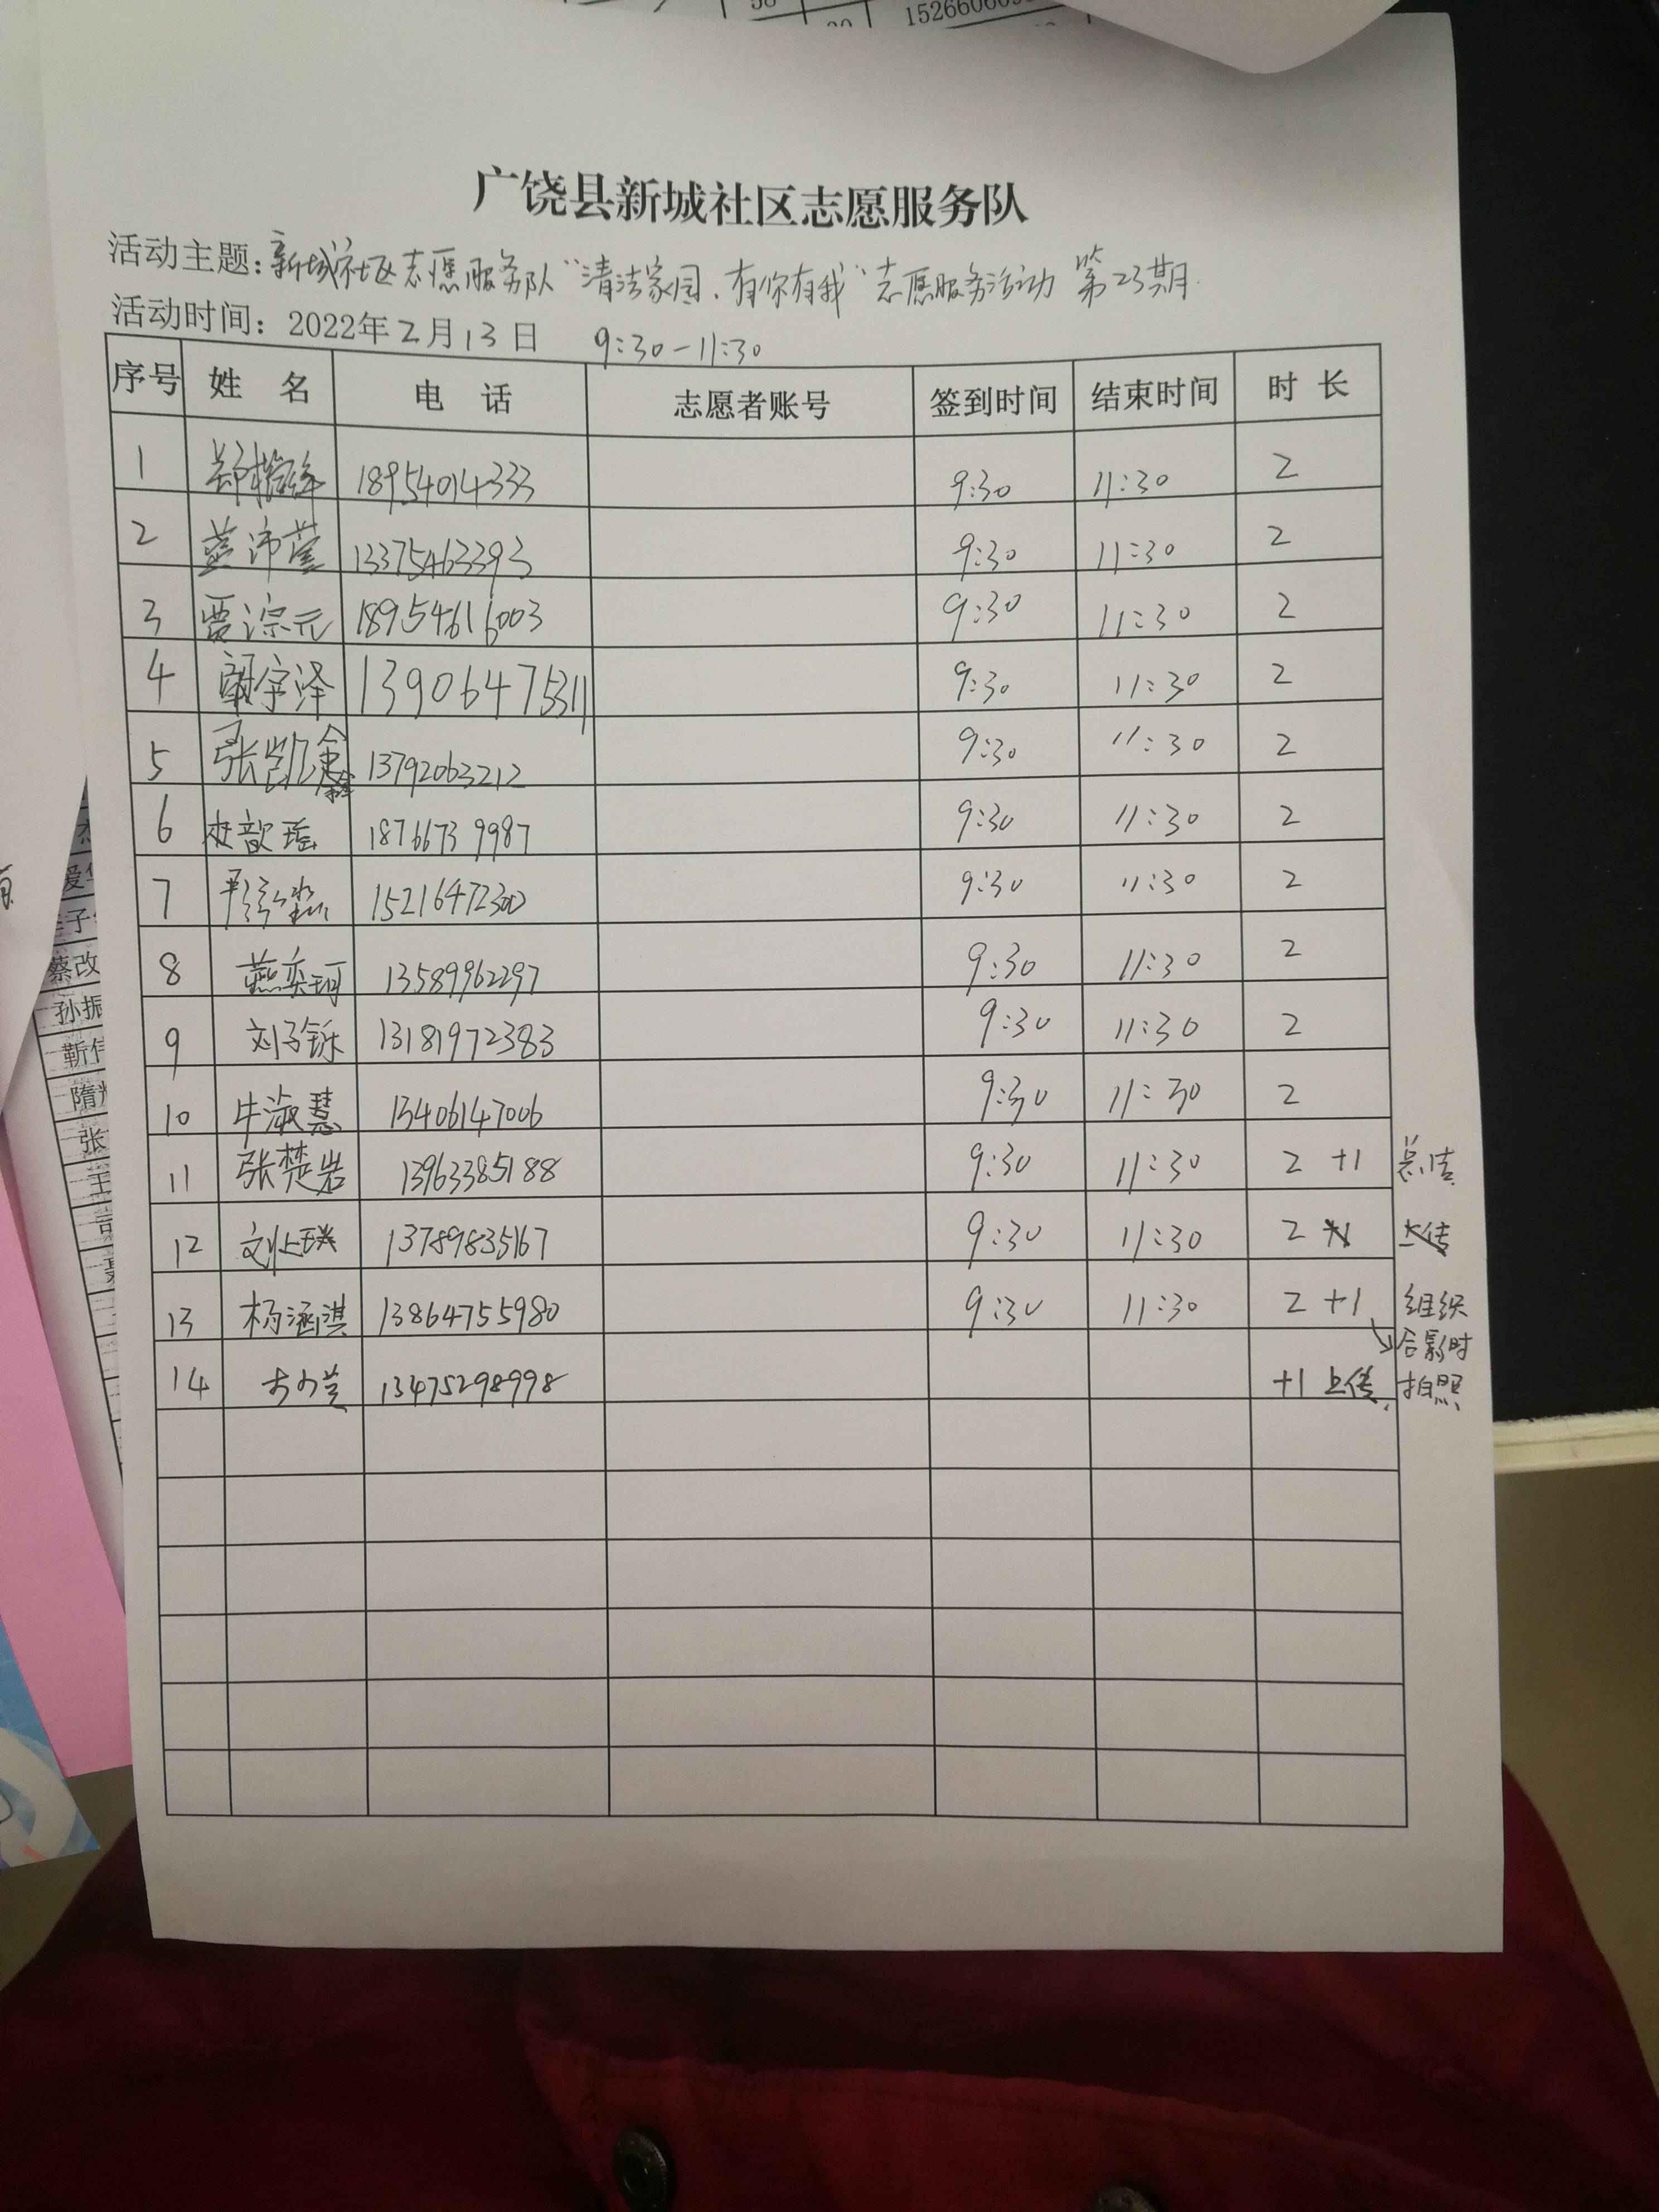 广饶县新城社区志愿服务队
活动主题：新城社区志愿服务队“清洁家园，有你有我”志愿服务活动 第23期
活动时间：2022年2月13日 9:30-11:30
序号 姓 名 电 话 志愿者账号 签到时间 结束时间 时 长
1 18954014333 9:30 11:30 2
2 13375463393 9:30 11:30 2
3 贾淙元 18954616003 9:30 11:30 2
4 13906475311 9:30 11:30 2
5 张凯鑫 13792063212 9:30 11:30 2
6 杜歆瑶 18766739987 9:30 11:30 2
7 15216472300 9:30 11:30 2
8 燕奕珂 13589962297 9:30 11:30 2
9 刘子铄 13181972383 9:30 11:30 2
10 牛淑慧 13406147006 9:30 11:30 2
11 张楚岩 13963385188 9:30 11:30 2 +1 总结
12 13789835167 9:30 11:30 2 上传
13 杨涵淇 13864755980 9:30 11:30 2 +1 组织
合影时
14 13475298998 +1 上传 拍照
蔡改
孙振
靳
隋
张
王